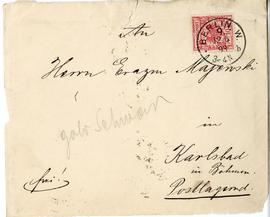 BERLIN W.
An
Herrn Erazm Majewski
in
Karlsbad
in Böhmen.
frei!
Postlagernd.